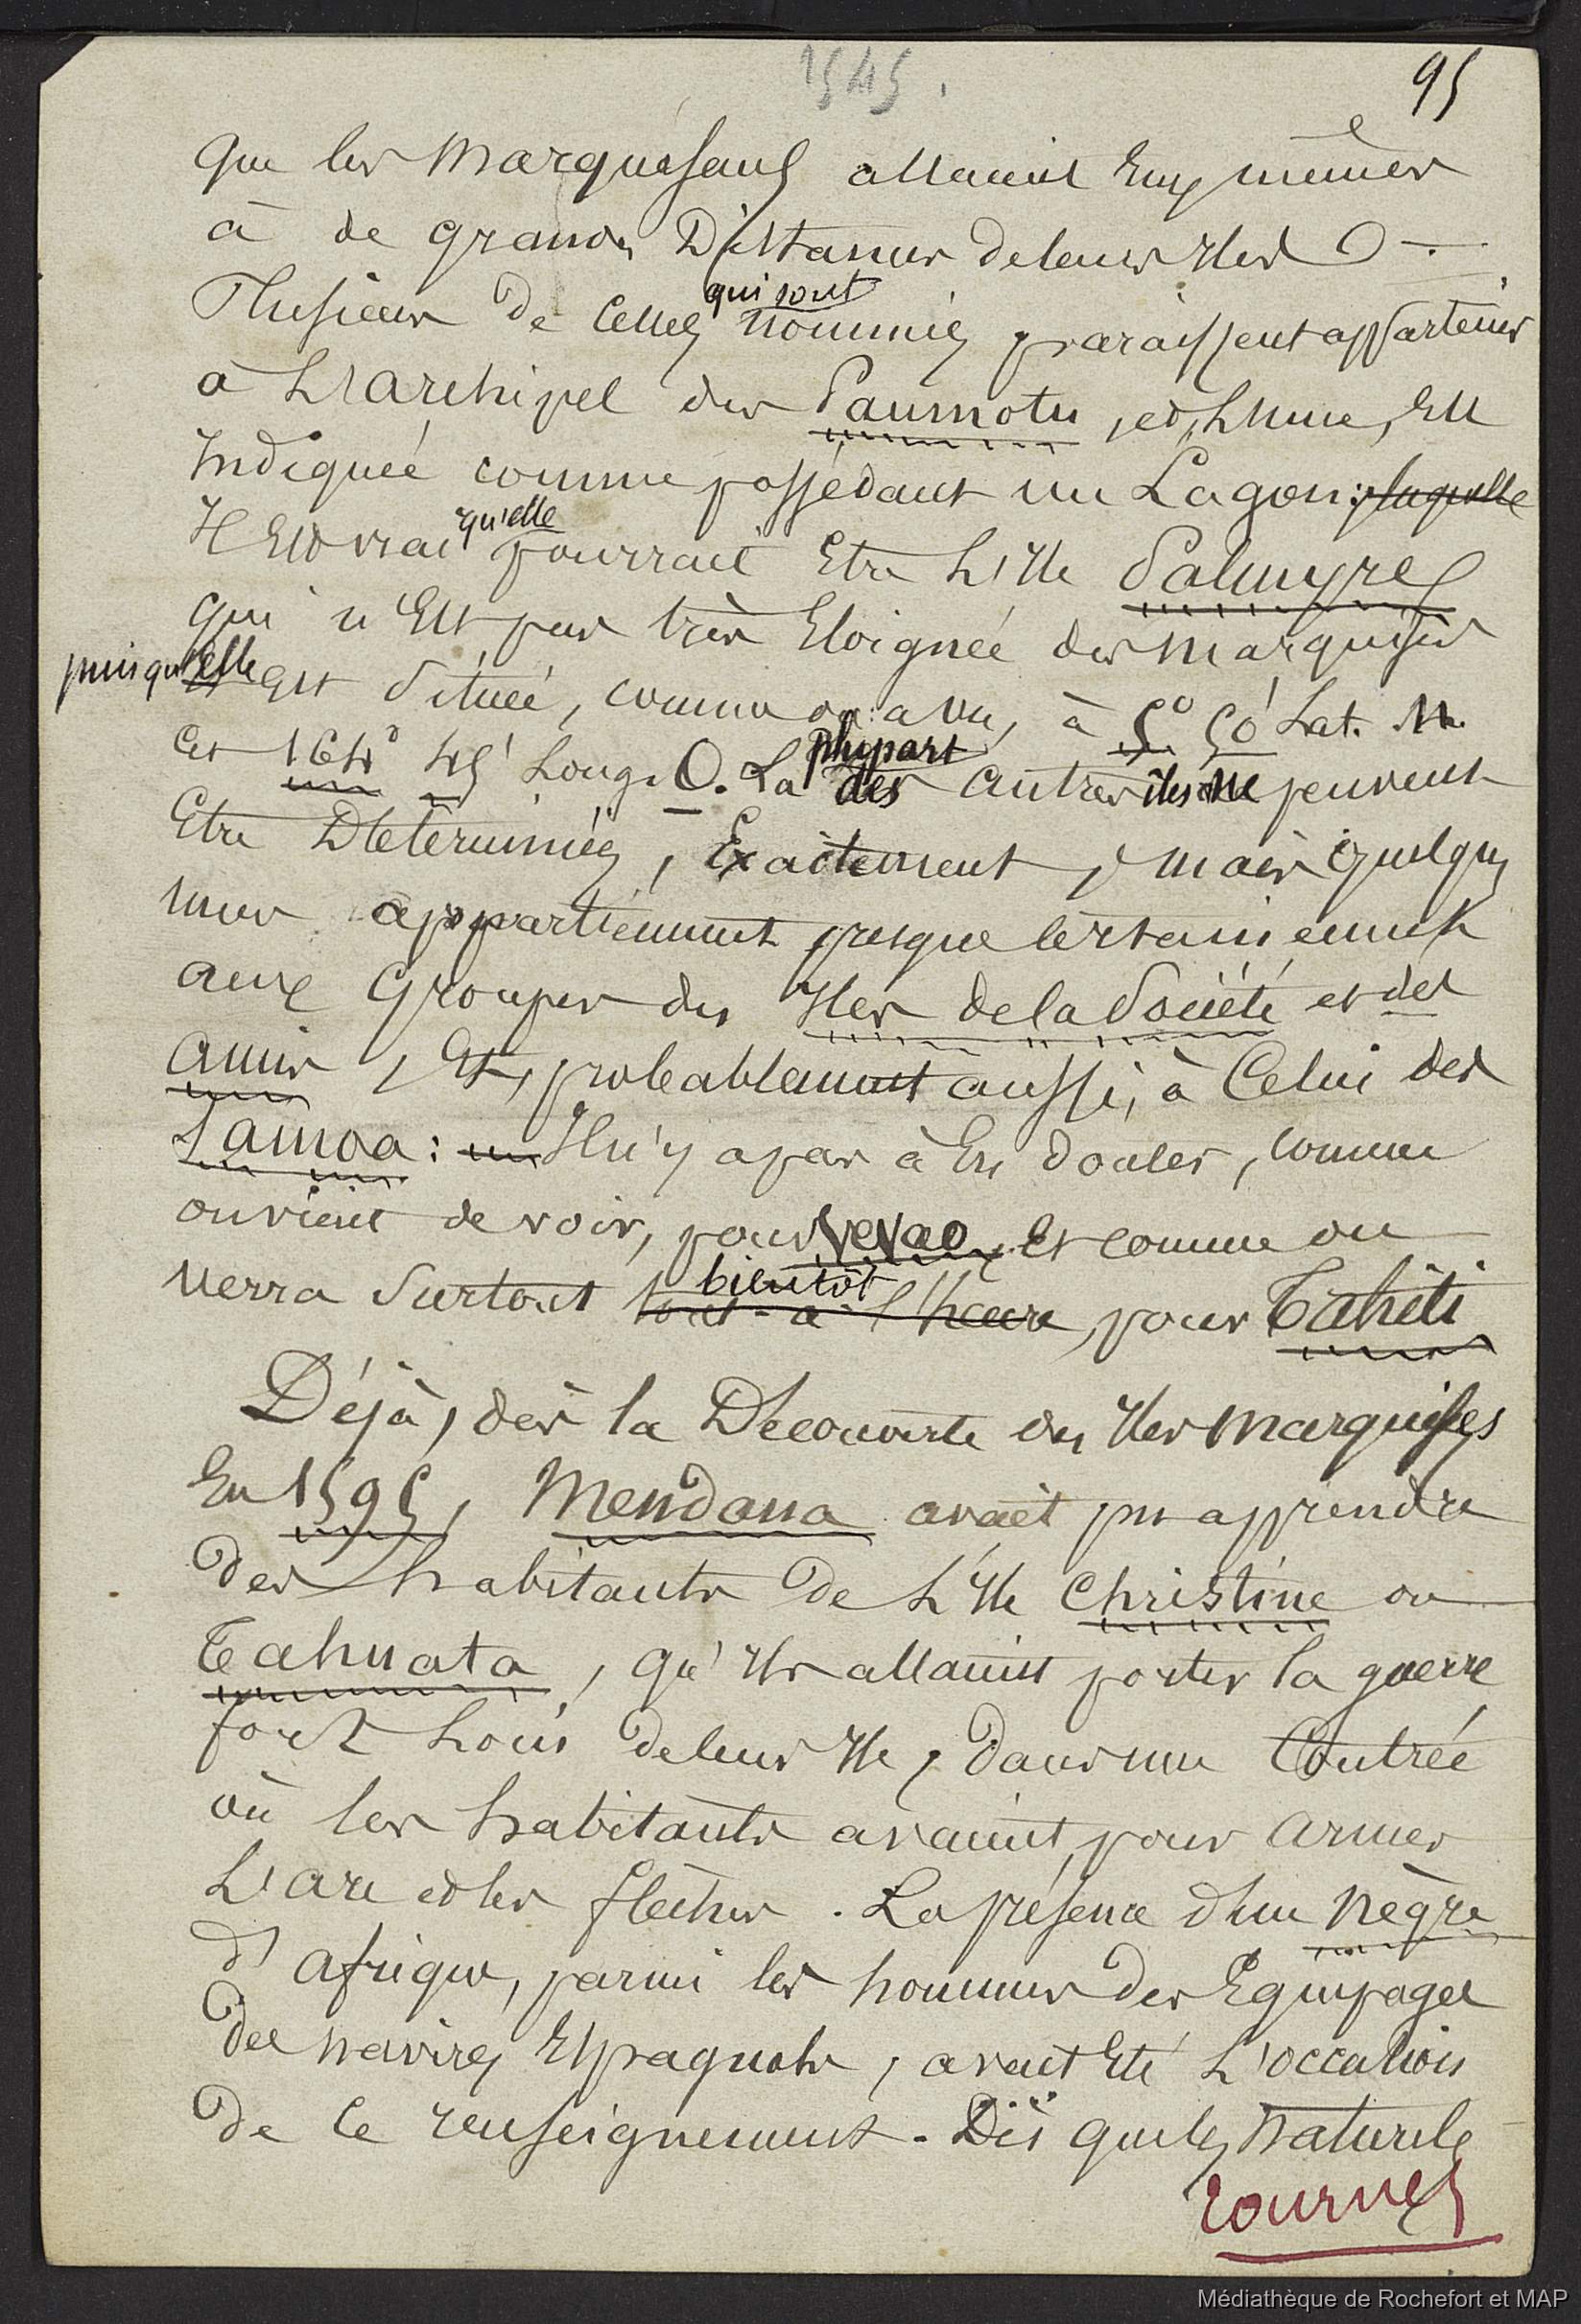 1545.
95
que les Marquésans allaient Eux mêmes
à de grandes Distances de leurs Iles.
Plusieurs de Celles qui sont nommées paraissent appartenir
à L'archipel des Paumotu, et, L'une, Est
Indiquée comme possédant un Lagon : laquelle
Il Est vrai qu'elle pourrait Etre L'Ile Palmyre
qui n'Est pas très Eloignée des Marquises
puisqu'elle est Située, comme on a vu, à 5° 50' Lat. N.
et 164° 45' Long. O. La plupart des autres îles ne peuvent
Etre Déterminées, Exactement, mais quelques
unes appartiennent presque certainement
aux Groupes des Iles de la Société et des
Amis, Et, probablement aussi, à Celui des
Samoa : Il n'y a pas à En douter, comme
on vient de voir, pour Vevao, Et comme on
verra Surtout tout-à-l'heure bientôt pour Tahiti
Déjà, dès la Découverte des Iles Marquises
En 1595, Mendana avait pu apprendre
des habitants de L'Ile Christine ou
Tahuata, qu'Ils allaient porter la guerre
fort Loin de leur Ile, dans une Contrée
où les habitants avaient, pour armes
L'arc et les flèches. La présence d'un nègre
d'Afrique, parmi les hommes des Equipages
des navires Espagnols, avait Eté L'occasion
de Ce renseignement. Dès que les Naturels
tournez
Médiathèque de Rochefort et MAP